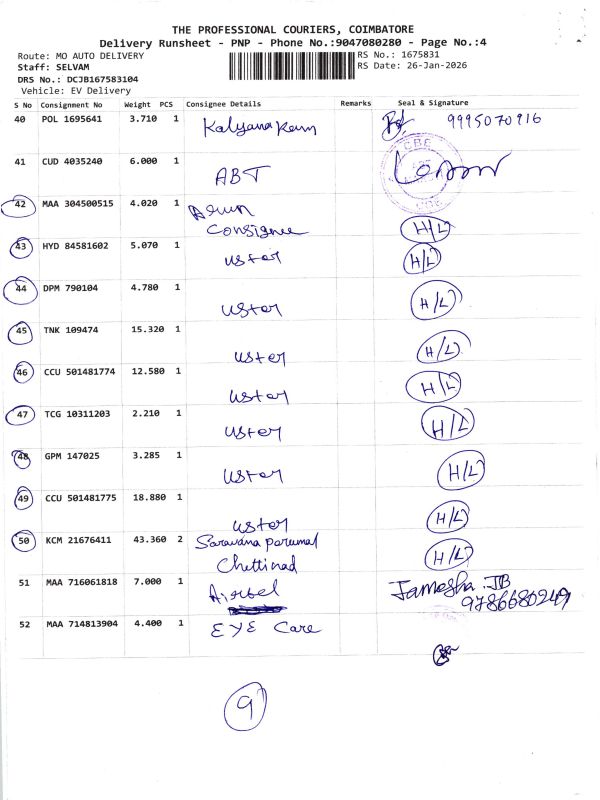 THE PROFESSIONAL COURIERS, COIMBATORE
Delivery Runsheet - PNP - Phone No.:9047080280 - Page No.:4
Route: MO AUTO DELIVERY RS No.: 1675831
Staff: SELVAM RS Date: 26-Jan-2026
DRS No.: DCJB167583104
Vehicle: EV Delivery
S No Consignment No Weight PCS Consignee Details Remarks Seal & Signature
40 POL 1695641 3.710 1 Kalyana Ram 9995070916
41 CUD 4035240 6.000 1 ABT CBE
42 MAA 304500515 4.020 1 Arun
Consignee H/L
43 HYD 84581602 5.070 1 uster H/L
44 DPM 790104 4.780 1 uster H/L
45 TNK 109474 15.320 1 uster H/L
46 CCU 501481774 12.580 1 uster H/L
47 TCG 10311203 2.210 1 uster H/L
48 GPM 147025 3.285 1 uster H/L
49 CCU 501481775 18.880 1 uster H/L
50 KCM 21676411 43.360 2 Saravana Perumal
Chettinad H/L
51 MAA 716061818 7.000 1 Airtel Jamesha.JB
9786680249
52 MAA 714813904 4.400 1 EYE Care
9